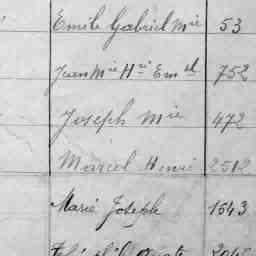 Emile Gabriel Mie 53
Jean Mie Hri Em el 752
Joseph Mie 472
Marcel Henri 2512
Marie Joseph 1543